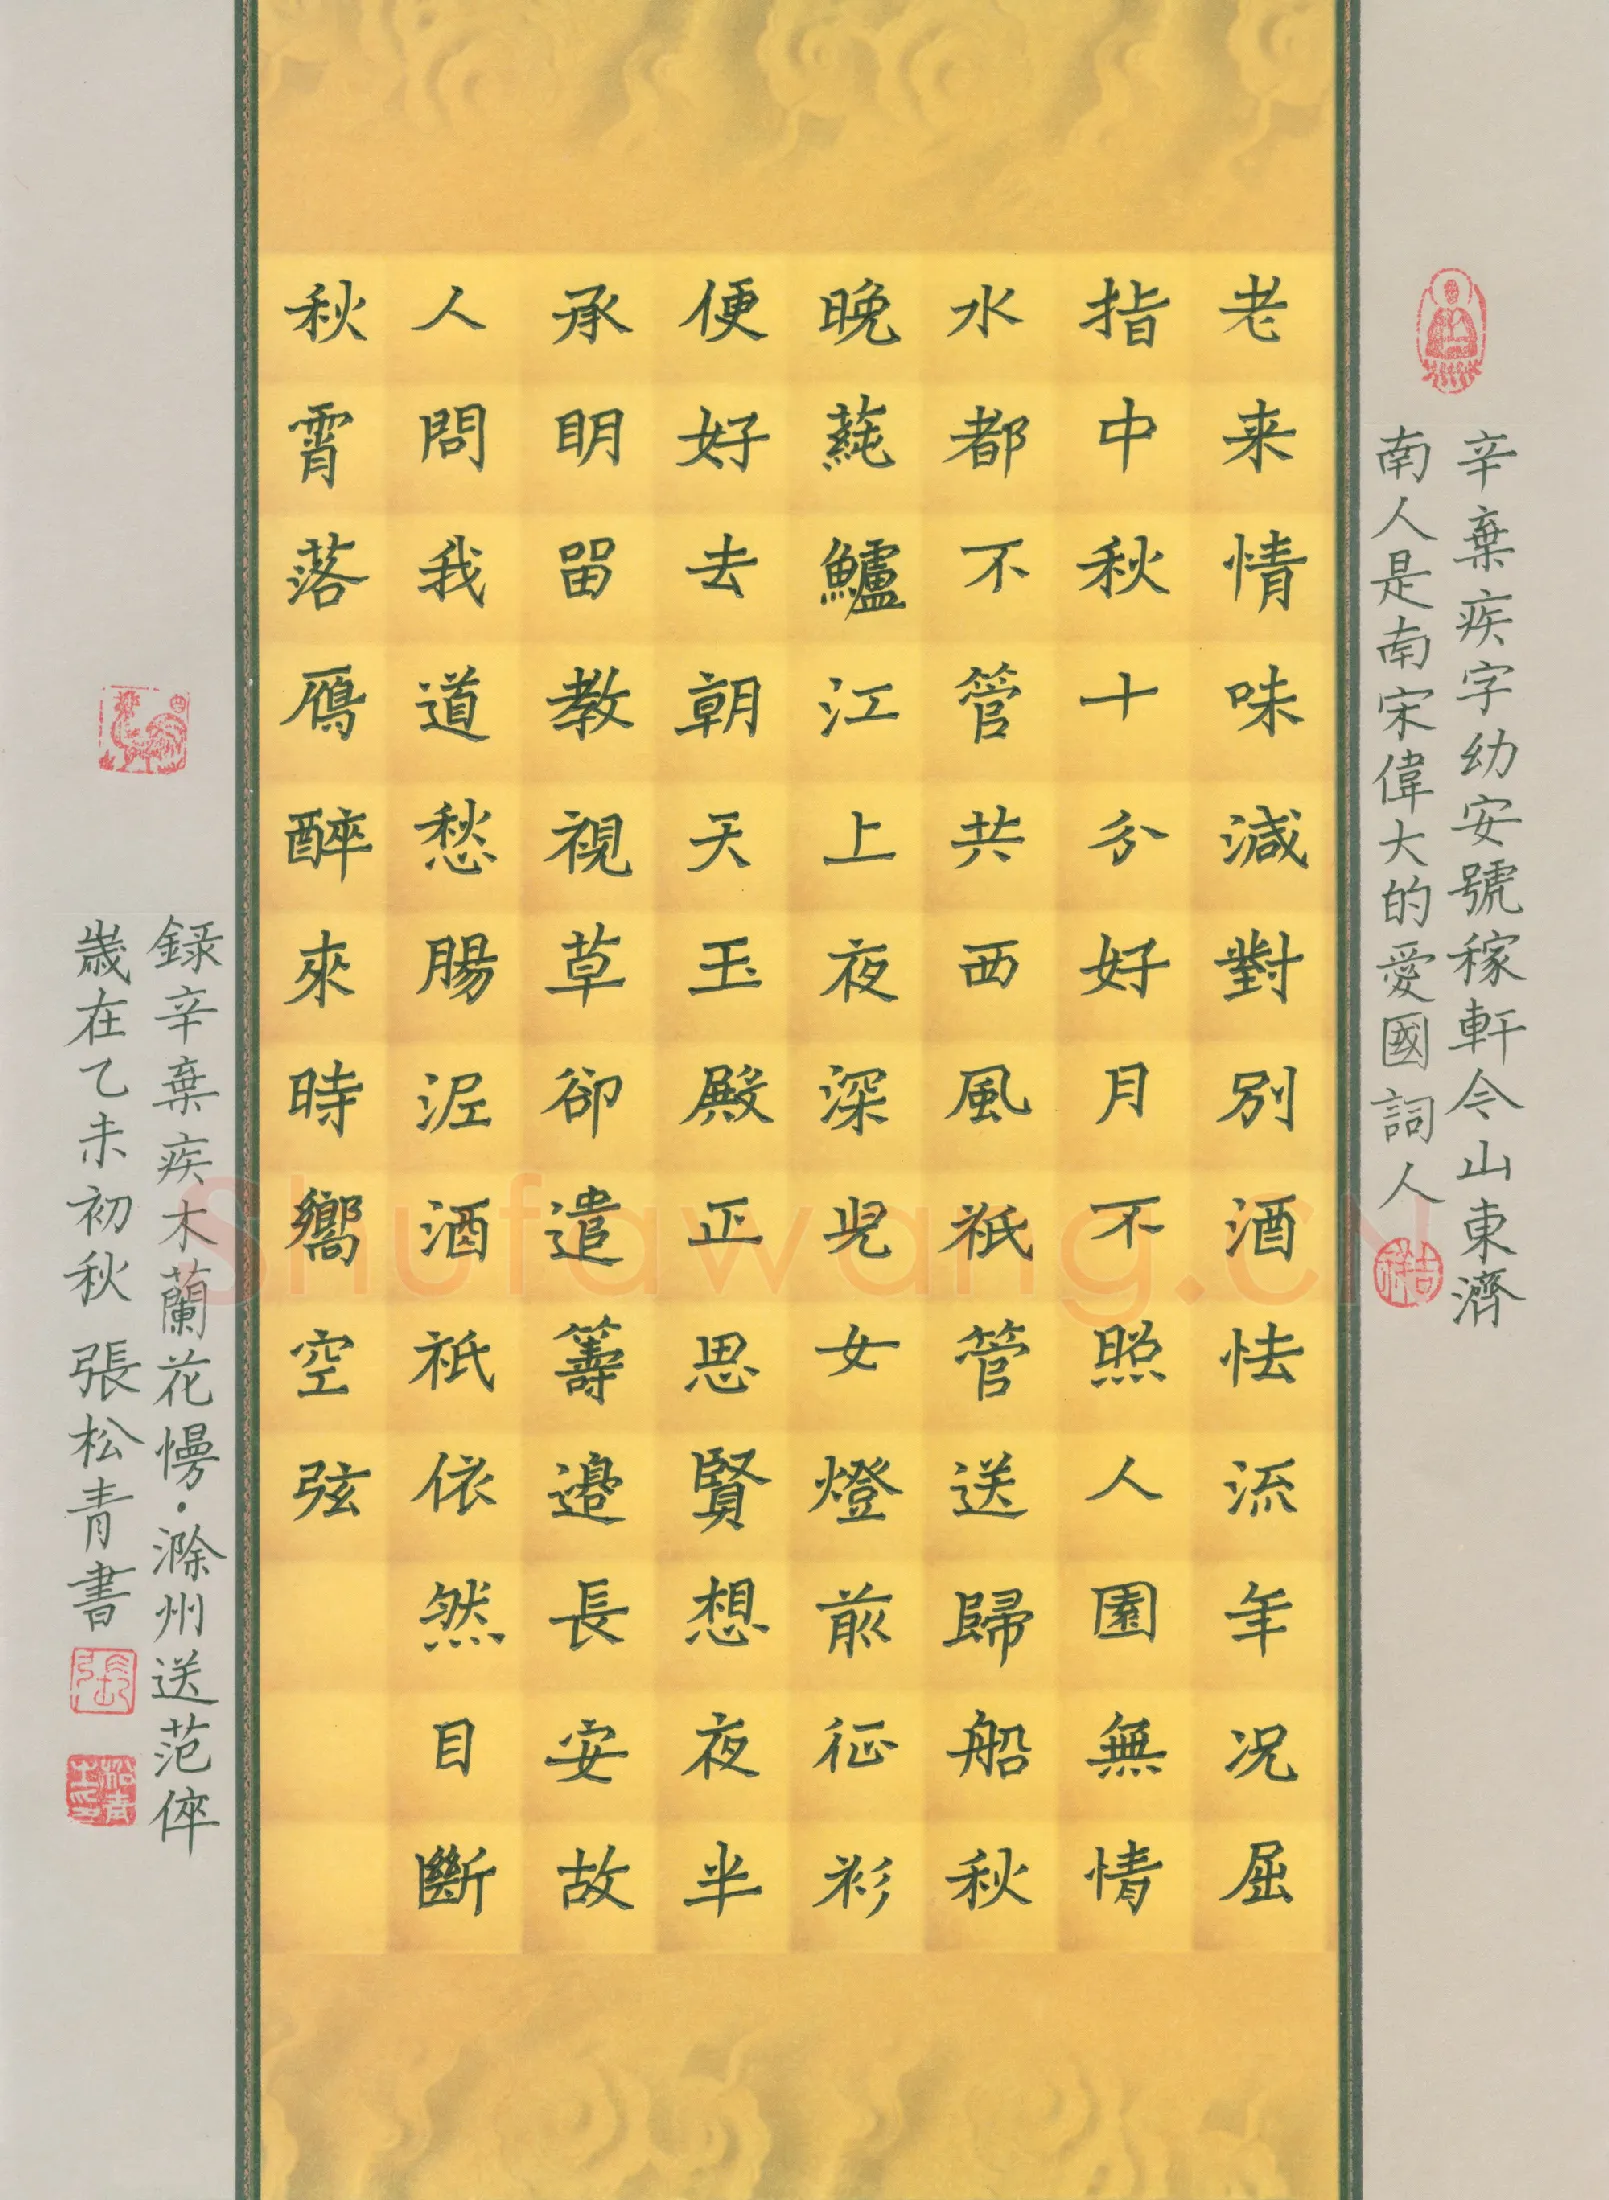 辛棄疾字幼安號稼軒今山東濟
南人是南宋偉大的愛國詞人
吉祥
老来情味減對別酒怯流年况屈
指中秋十分好月不照人圓無情
水都不管共西風祇管送歸船秋
晚蒓鱸江上夜深兒女燈前征衫
便好去朝天玉殿正思賢想夜半
承明留教視草卻遣籌邊長安故
人問我道愁腸泥酒祇依然目斷
秋霄落鴈醉來時嚮空弦
錄辛棄疾木蘭花慢·滁州送范倅
歲在乙未初秋 張松青書
張
Shufawang.CN